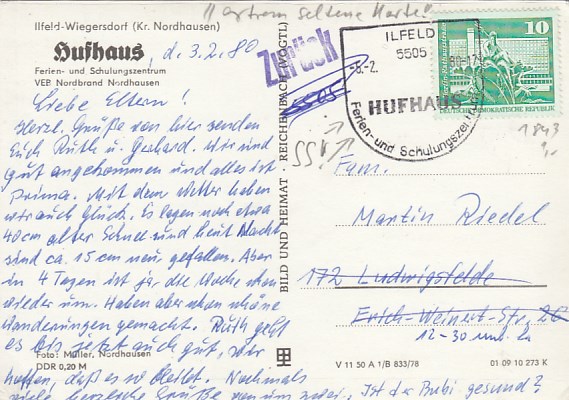 "extrem seltene Karte"
Ilfeld-Wiegersdorf (Kr. Nordhausen)
Hufhaus, d. 3.2.80
Ferien- und Schulungszentrum
VEB Nordbrand Nordhausen
Zurück
5505
ILFELD
5505
-5.-2. 80-17
HUFHAUS
Ferien- und Schulungszentrum
10
DEUTSCHE DEMOKRATISCHE REPUBLIK
1843
SS!
Liebe Eltern!
Herzl. Grüße von hier senden
Euch Ruth u. Gerhard. Wir sind
gut angekommen und alles ist
prima. Mit dem Wetter haben
wir auch Glück. Es lagen noch etwa
40 cm alter Schnee und heut Nacht
sind ca. 15 cm neu gefallen. Aber
in 4 Tagen ist ja die Woche schon
wieder um. Haben aber schon schöne
Wanderungen gemacht. Ruth geht
es bis jetzt auch gut, wir
hoffen, daß es so bleibt. Nochmals
viele herzliche Grüße von uns zwei, Ist der Bubi gesund?
Foto: Müller, Nordhausen
DDR 0,20 M
BILD UND HEIMAT · REICHENBACH (VOGTL)
Fam.
Martin Riedel
172 Ludwigsfelde
Erich-Weinert-Str. 20
12-30
V 11 50 A 1/B 833/78
01 09 10 273 K